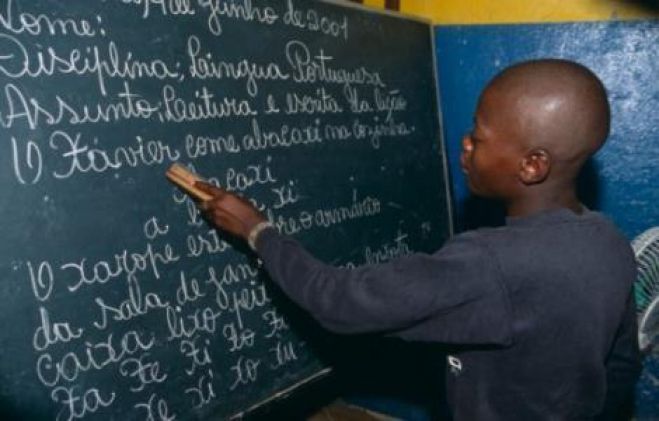 de Junho de 2001
Nome:
Disciplina: Língua Portuguesa
Assunto: Leitura e escrita da lição
1) Xavier come abacaxi na cozinha.
caxi
xi
a
1) xarope est bre o armário
da sala de jan
caixa lixo
Xa Xe Xi Xo
xe xi xo xu